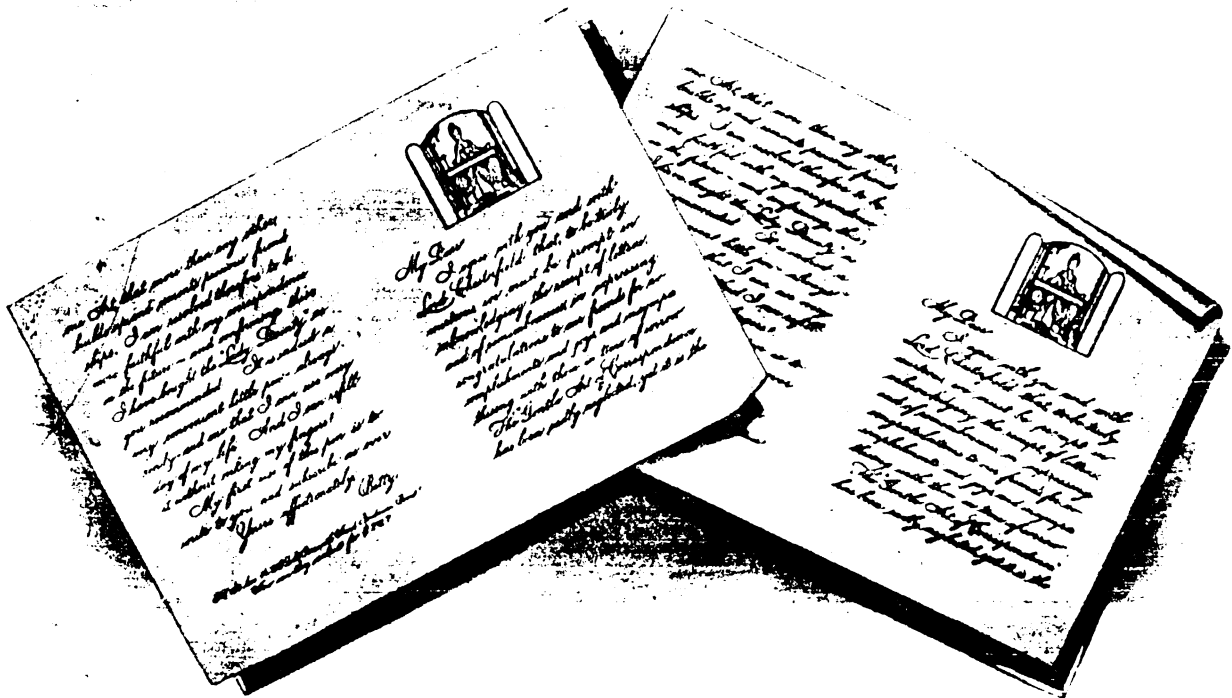 My Dear
I agree with you and with
Lord Chesterfield that, to be truly
courteous, we must be prompt in
acknowledging the receipt of letters.
and of punctiliousness in expressing
congratulations to our friends for ac-
complishments and joys and in sympa-
thizing with them in time of sorrow.
The Gentle Art of Correspondence
has been partly neglected, yet it is the
one Art that more than any other
builds up and cements precious friend-
ships. I am resolved therefore to be
more faithful with my correspondence
in the future — and, confirming this,
I have bought the "Lady Dainty" as
you recommended. It is indeed a
very convenient little pen — always
ready — and one that I can use any
day of my life. And I can refill
it without inking my fingers!
My first use of the pen is to
write to you and subscribe as ever
Yours affectionately, Betty.
My Dear
I agree with you and with
Lord Chesterfield that, to be truly
courteous, we must be prompt in
acknowledging the receipt of letters.
and of punctiliousness in expressing
congratulations to our friends for ac-
complishments and joys and in sympa-
thizing with them in time of sorrow.
The Gentle Art of Correspondence
has been partly neglected, yet it is the
one Art that more than any other
builds up and cements precious friend-
ships. I am resolved therefore to be
more faithful with my correspondence
in the future — and, confirming this,
I have bought the "Lady Dainty" as
recommended. It is indeed a
little pen — always
that I can use any
And I can refill
fingers!